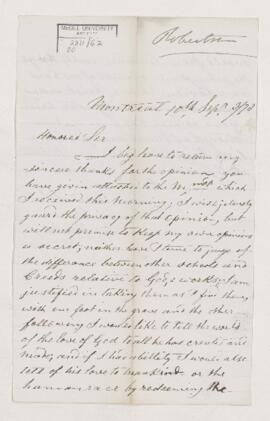 McGILL UNIVERSITY
ARCHIVES
2211/62
Robertson
Montreal 10th Sepr /78
Honored Sir
I beg leave to return my
sincere thanks for the opinion you
have given relative to the M. which
I received this morning, I will
guard the privacy of that opinion, but
will not promise to keep my own opinions
a secret, neither have I time to judge of
the difference between other schools and
Creeds relative to God's works, I am
justified in taking them as I find them,
with one foot in the grave and the other
following I would like to tell the world
of the love of God to all he has created and
made, and if I had ability I would also
tell of his love to mankind or the
human race by redeeming the